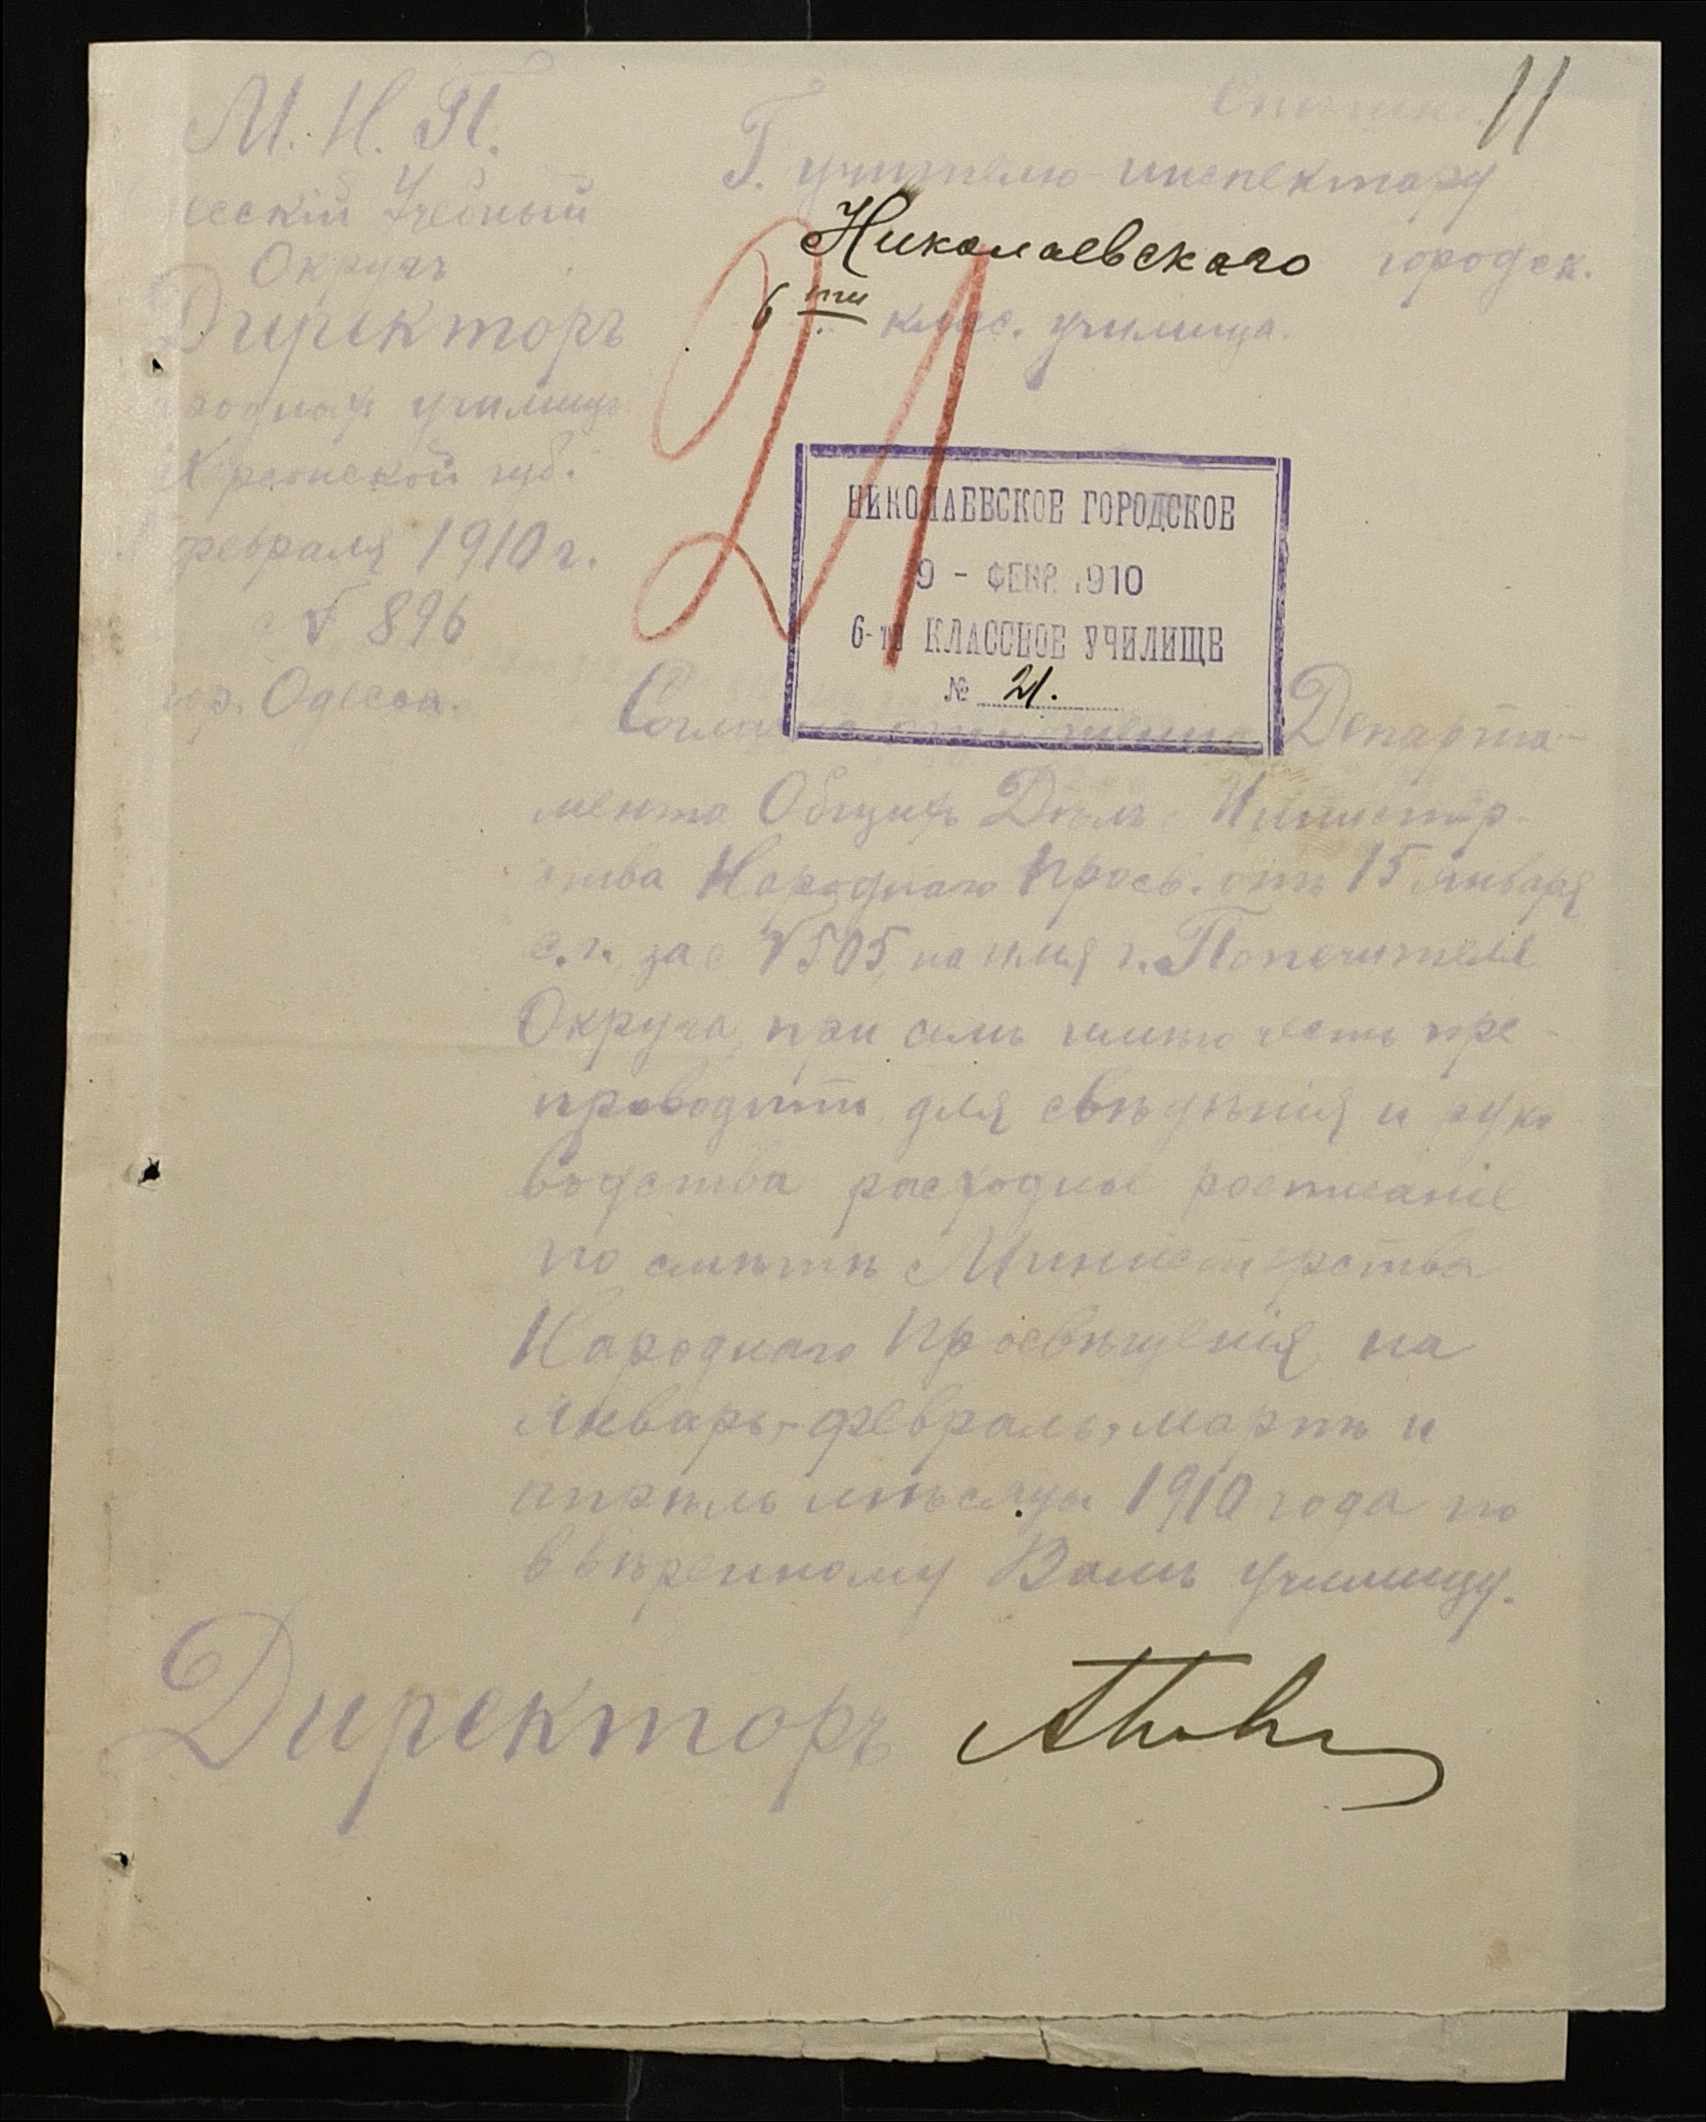 11
М. Н. П.
Учебный
Округъ
Директоръ
училищъ
губ.
февраля 1910 г.
№ 896
гор. Одесса.
Г. учителю-инспектору
Николаевскаго городск.
6ти клас. училища.
21
НИКОЛАЕВСКОЕ ГОРОДСКОЕ
9 - ФЕВР 1910
6-ти КЛАССНОЕ УЧИЛИЩЕ
№ 21.
Согласно отношенію Департа-
мента Общихъ Дѣлъ Министер-
ства Народнаго Просв. отъ 15 января
с. г. за № 505, на имя г. Попечителя
Округа, при семъ имѣю честь пре-
проводить для свѣдѣнія и руко
водства расходные росписаніе
по смѣтѣ Министерства
Народнаго Просвѣщенія на
январь, февраль, мартъ и
апрѣль мѣсяцы 1910 года по
ввѣренному Вамъ училищу.
Директоръ